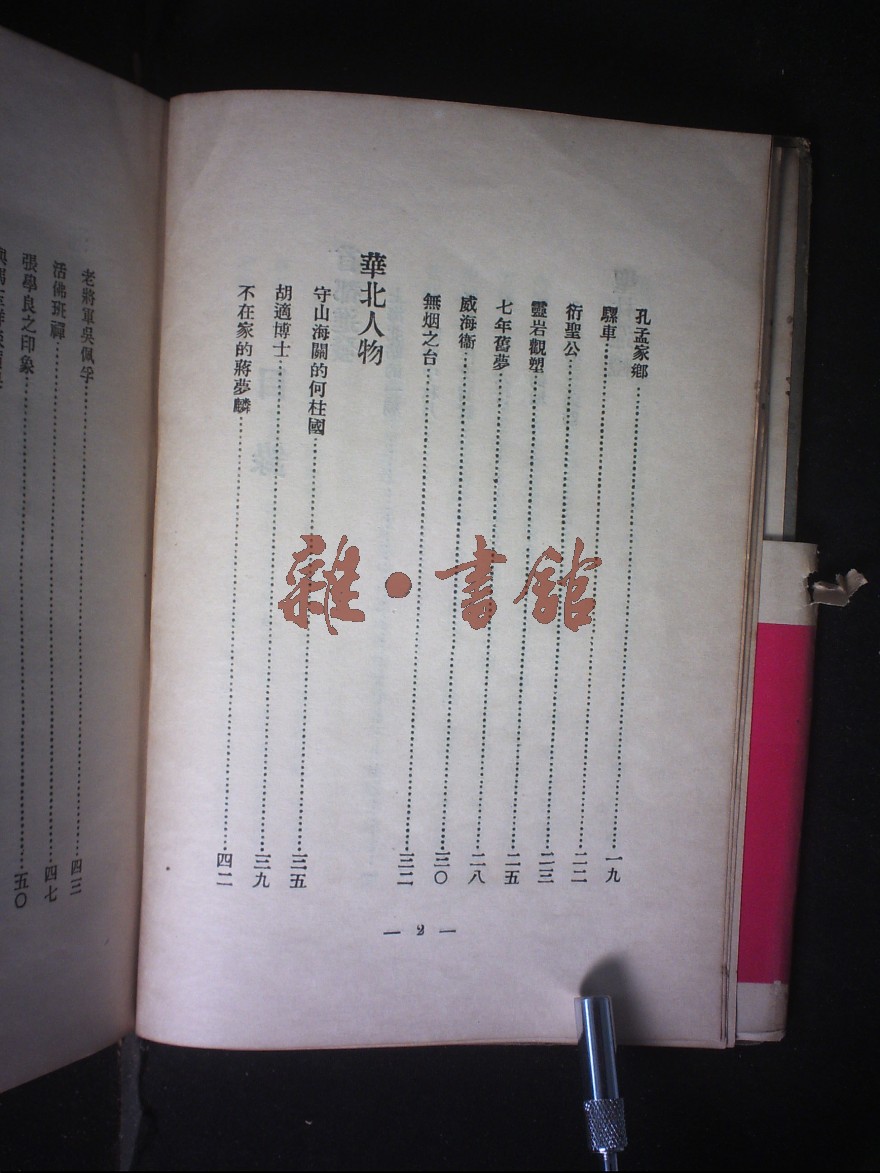 孔孟家鄉……一九
騾車……二二
衍聖公……二三
靈岩觀塑……二五
七年舊夢……二八
威海衞……三〇
無烟之台……三二
華北人物
守山海關的何柱國……三五
胡適博士……三九
不在家的蔣夢麟……四二
— 2 —
老將軍吳佩孚……四三
活佛班禪……四七
張學良之印象……五〇
雜•書館